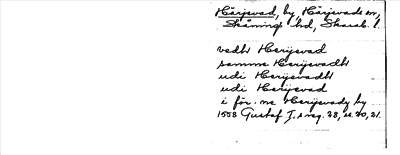 Härjevad, by, Härjevads sn,
Skånings hd, Skarab. l.
vedh Herijevad
samme Herijevadh
udi Herijevadh
udi Herijevad
i för. ne Herijevady by
1553 Gustaf I:s reg. 23, s. 20, 21.